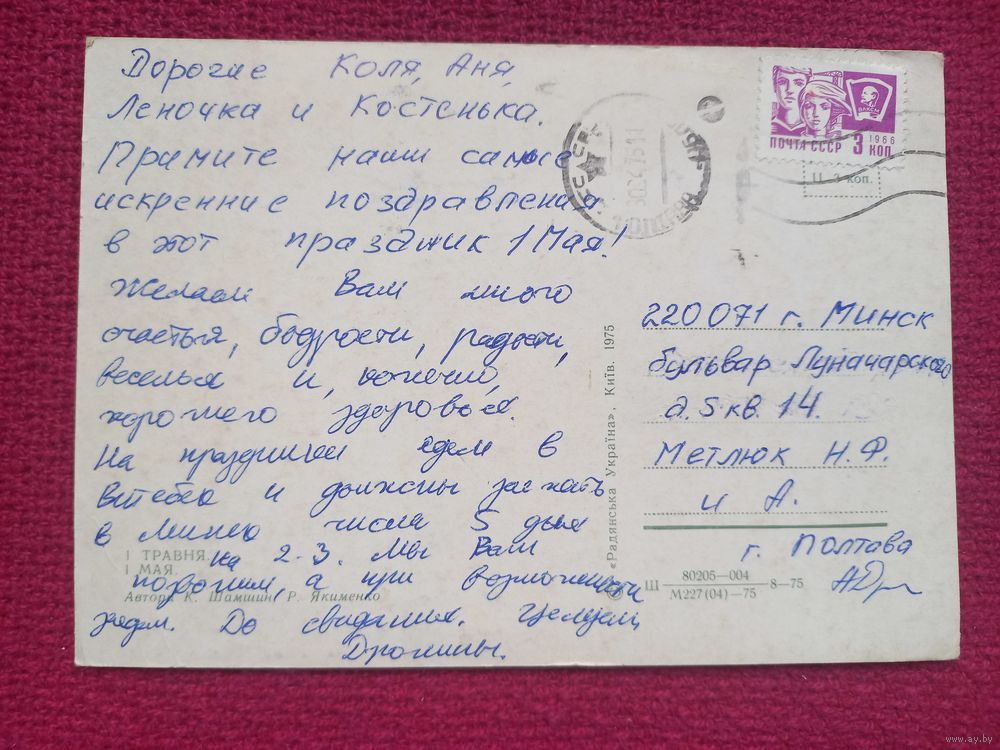 Дорогие Коля, Аня,
Леночка и Костенька.
Примите наши самые
искренние поздравления
в этот праздник 1 Мая!
Желаем Вам много
счастья, бодрости, радости,
веселья и, конечно,
хорошего здоровья.
На праздники едем в
Витебск и должны заехать
в Минск числа 5 дня
на 2-3. Мы Вам
позвоним, а при возможности
заедем. До свидания. Целуем
Дромины.
1 ТРАВНЯ.
1 МАЯ.
Автори К. Шамшин, Р. Якименко
«Радянська Україна», Київ. 1975
ВЛКСМ
1966
ПОЧТА СССР 3 КОП
Ц. 3 коп.
220071 г. Минск
бульвар Луначарского
д. 5 кв. 14.
Метлюк Н.Ф.
и А.
г. Полтава
Ш 80205—004 8—75
М227(04)—75
www.ay.by